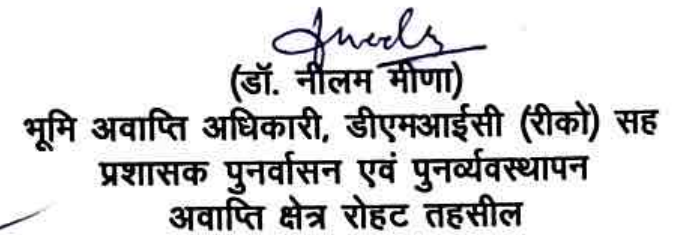 (डॉ. नीलम मीणा)
भूमि अवाप्ति अधिकारी, डीएमआईसी (रीको) सह
प्रशासक पुनर्वासन एवं पुनर्व्यवस्थापन
अवाप्ति क्षेत्र रोहट तहसील